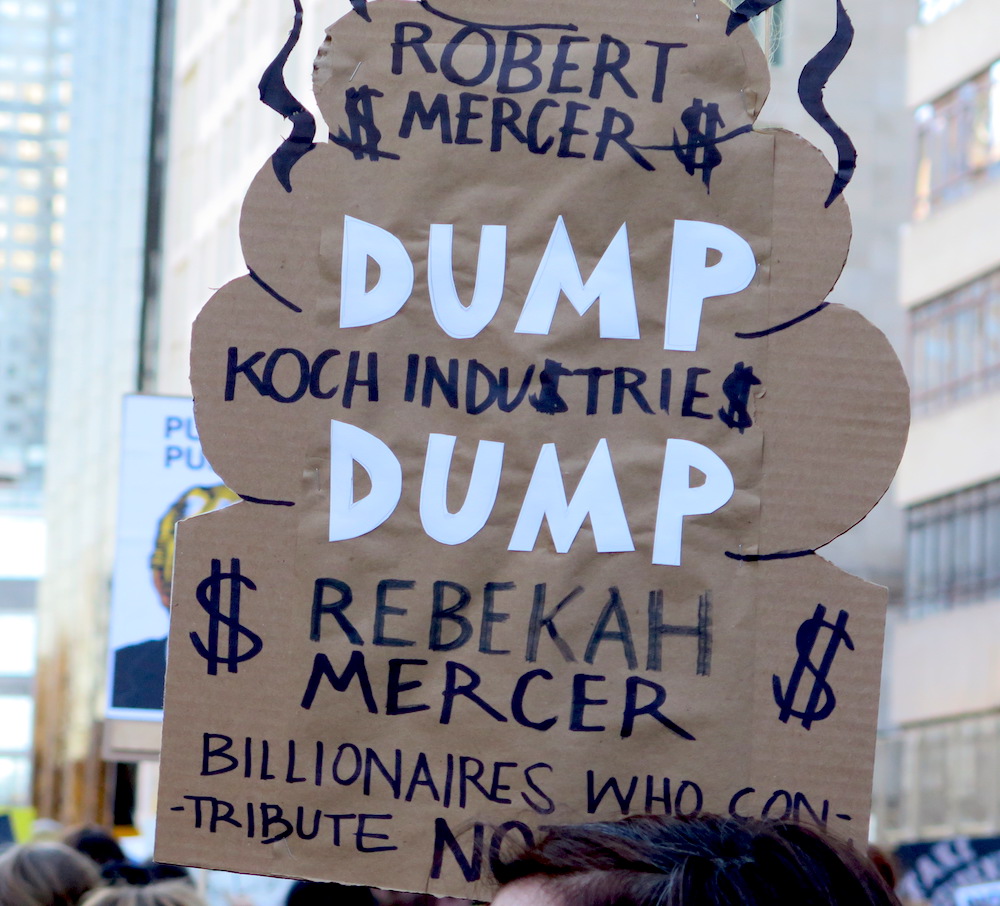 ROBERT
$ MERCER $
DUMP
KOCH INDU$TRIE$
DUMP
$ REBEKAH $
MERCER
BILLIONAIRES WHO CON-
-TRIBUTE
PU
PU